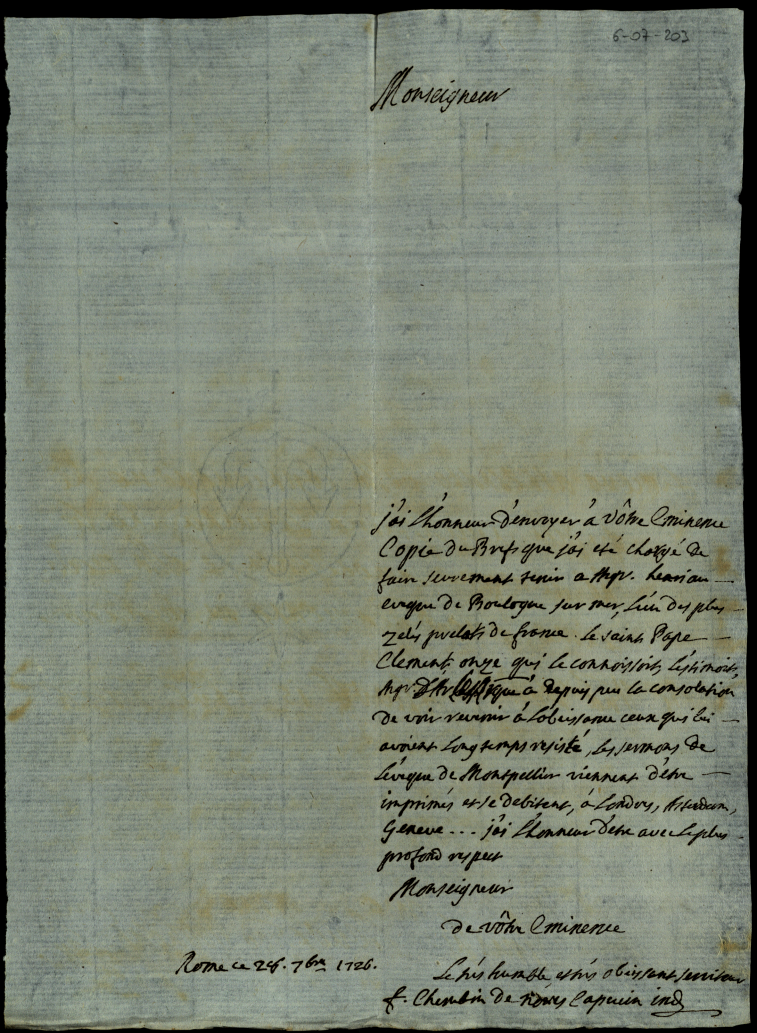 6-07-203
Monseigneur
j'ai l'honneur d'envoyer à vôtre Eminence
Copie du Bref que j'ai eté chargé de
faire seurement tenir a Mgr. henriau
eveque de Boulogne sur mer, l'un des plus
zelés prelats de france. le saint Pape
Clement onze qui le connoissoit, l'estimoit,
Mgr. à depuis peu la consolation
de voir revenir à l'obissance ceux qui lui
avoient longtemps resisté, les sermons de
l'éveque de Montpellier viennent d'être
imprimés et se debitent, à Londres, Asterdam,
Geneve... j'ai l'honneur d'etre avec le plus
profond respect
Monseigneur
de vôtre Eminence
Rome ce 7bre 1726.
Le trés humble et trés obeissant serviteur
f. Cherubin de Capucin ind